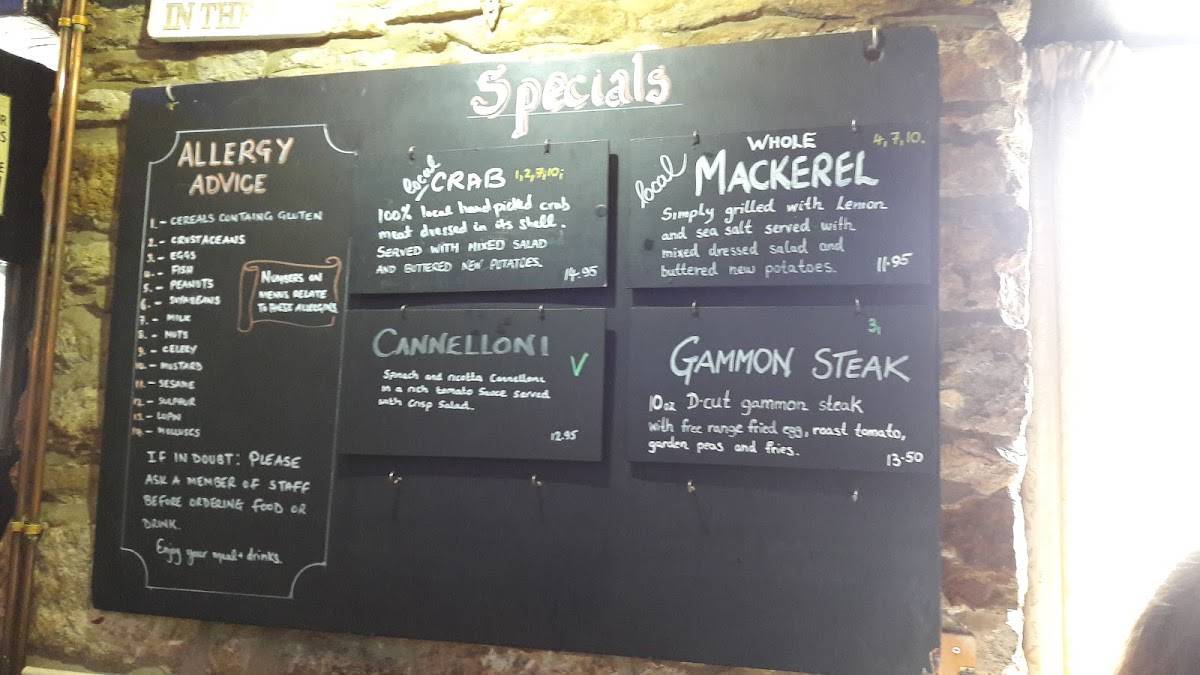 IN THE
Specials
ALLERGY
ADVICE
1. - CEREALS CONTAING GLUTEN
2. - CRUSTACEANS
3. - EGGS
4. - FISH
5. - PEANUTS
6. - SOYABEANS
7. - MILK
8. - NUTS
9. - CELERY
10. - MUSTARD
11. - SESAME
12. - SULPHUR
13. - LUPIN
14. - MOLLUSCS
NUMBERS ON
MENUS RELATE
TO THESE ALLERGINS.
IF IN DOUBT: PLEASE
ASK A MEMBER OF STAFF
BEFORE ORDERING FOOD OR
DRINK.
Enjoy your meal + drinks.
local CRAB 1,2,7,10,
100% local hand picked crab
meat dressed in its shell.
SERVED WITH MIXED SALAD
AND BUTTERED NEW POTATOES.
14.95
local WHOLE 4,7,10.
MACKEREL
Simply grilled with Lemon
and sea salt served with
mixed dressed salad and
buttered new potatoes.
11.95
CANNELLONI
V
Spinach and ricotta Cannelloni
in a rich tomato Sauce served
with Crisp Salad.
12.95
3,
GAMMON STEAK
10oz D-cut gammon steak
with free range fried egg, roast tomato,
garden peas and fries.
13.50